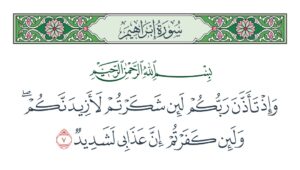 سُورَةُ إِبْرَاهِيمَ
بِسْمِ اللَّهِ الرَّحْمَٰنِ الرَّحِيمِ
وَإِذْ تَأَذَّنَ رَبُّكُمْ لَئِن شَكَرْتُمْ لَأَزِيدَنَّكُمْ ۖ
وَلَئِن كَفَرْتُمْ إِنَّ عَذَابِي لَشَدِيدٌ ٧